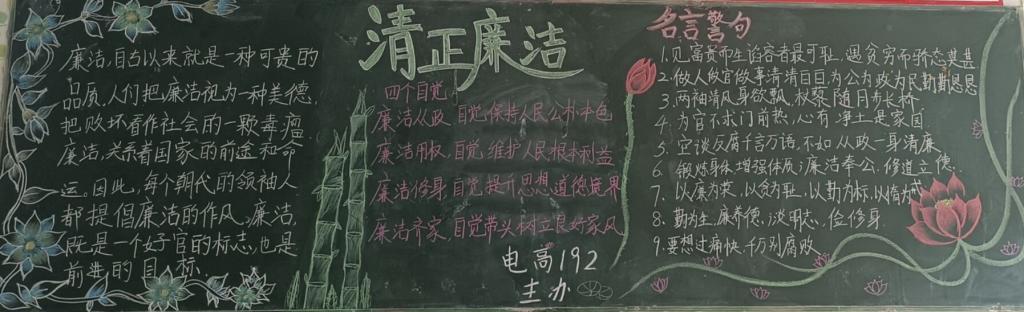 廉洁,自古以来就是一种可贵的
品质,人们把廉洁视为一种美德,
把败坏看作社会的一颗毒瘤
廉洁,关系着国家的前途和命
运。因此,每个朝代的领袖人
都提倡廉洁的作风。廉洁,
既是一个好官的标志,也是
前进的目标.
清正廉洁
四个自觉
廉洁从政 自觉保持人民公朴本色
廉洁用权,自觉维护人民根本利益
廉洁修身 自觉提升思想道德境界
廉洁齐家,自觉带头树立良好家风
电高192
主办
名言警句
1.见富贵而生谄容者最可耻,遇贫穷而骄态
2.做人做官做事清清白白,为公为政为民勤勤恳恳
3.两袖清风身欲飘,杖藜随月步长桥
4.为官不求门前热,心有净土是家国
5.空谈反腐千言万语,不如从政一身清廉
6.锻炼身体增强体质,廉洁奉公,修道立德.
7.以廉为荣,以贪为耻,以勤为标,以俭为
8.勤为生,廉养德,淡明志,俭修身
9.要想过痛快,千万别腐败